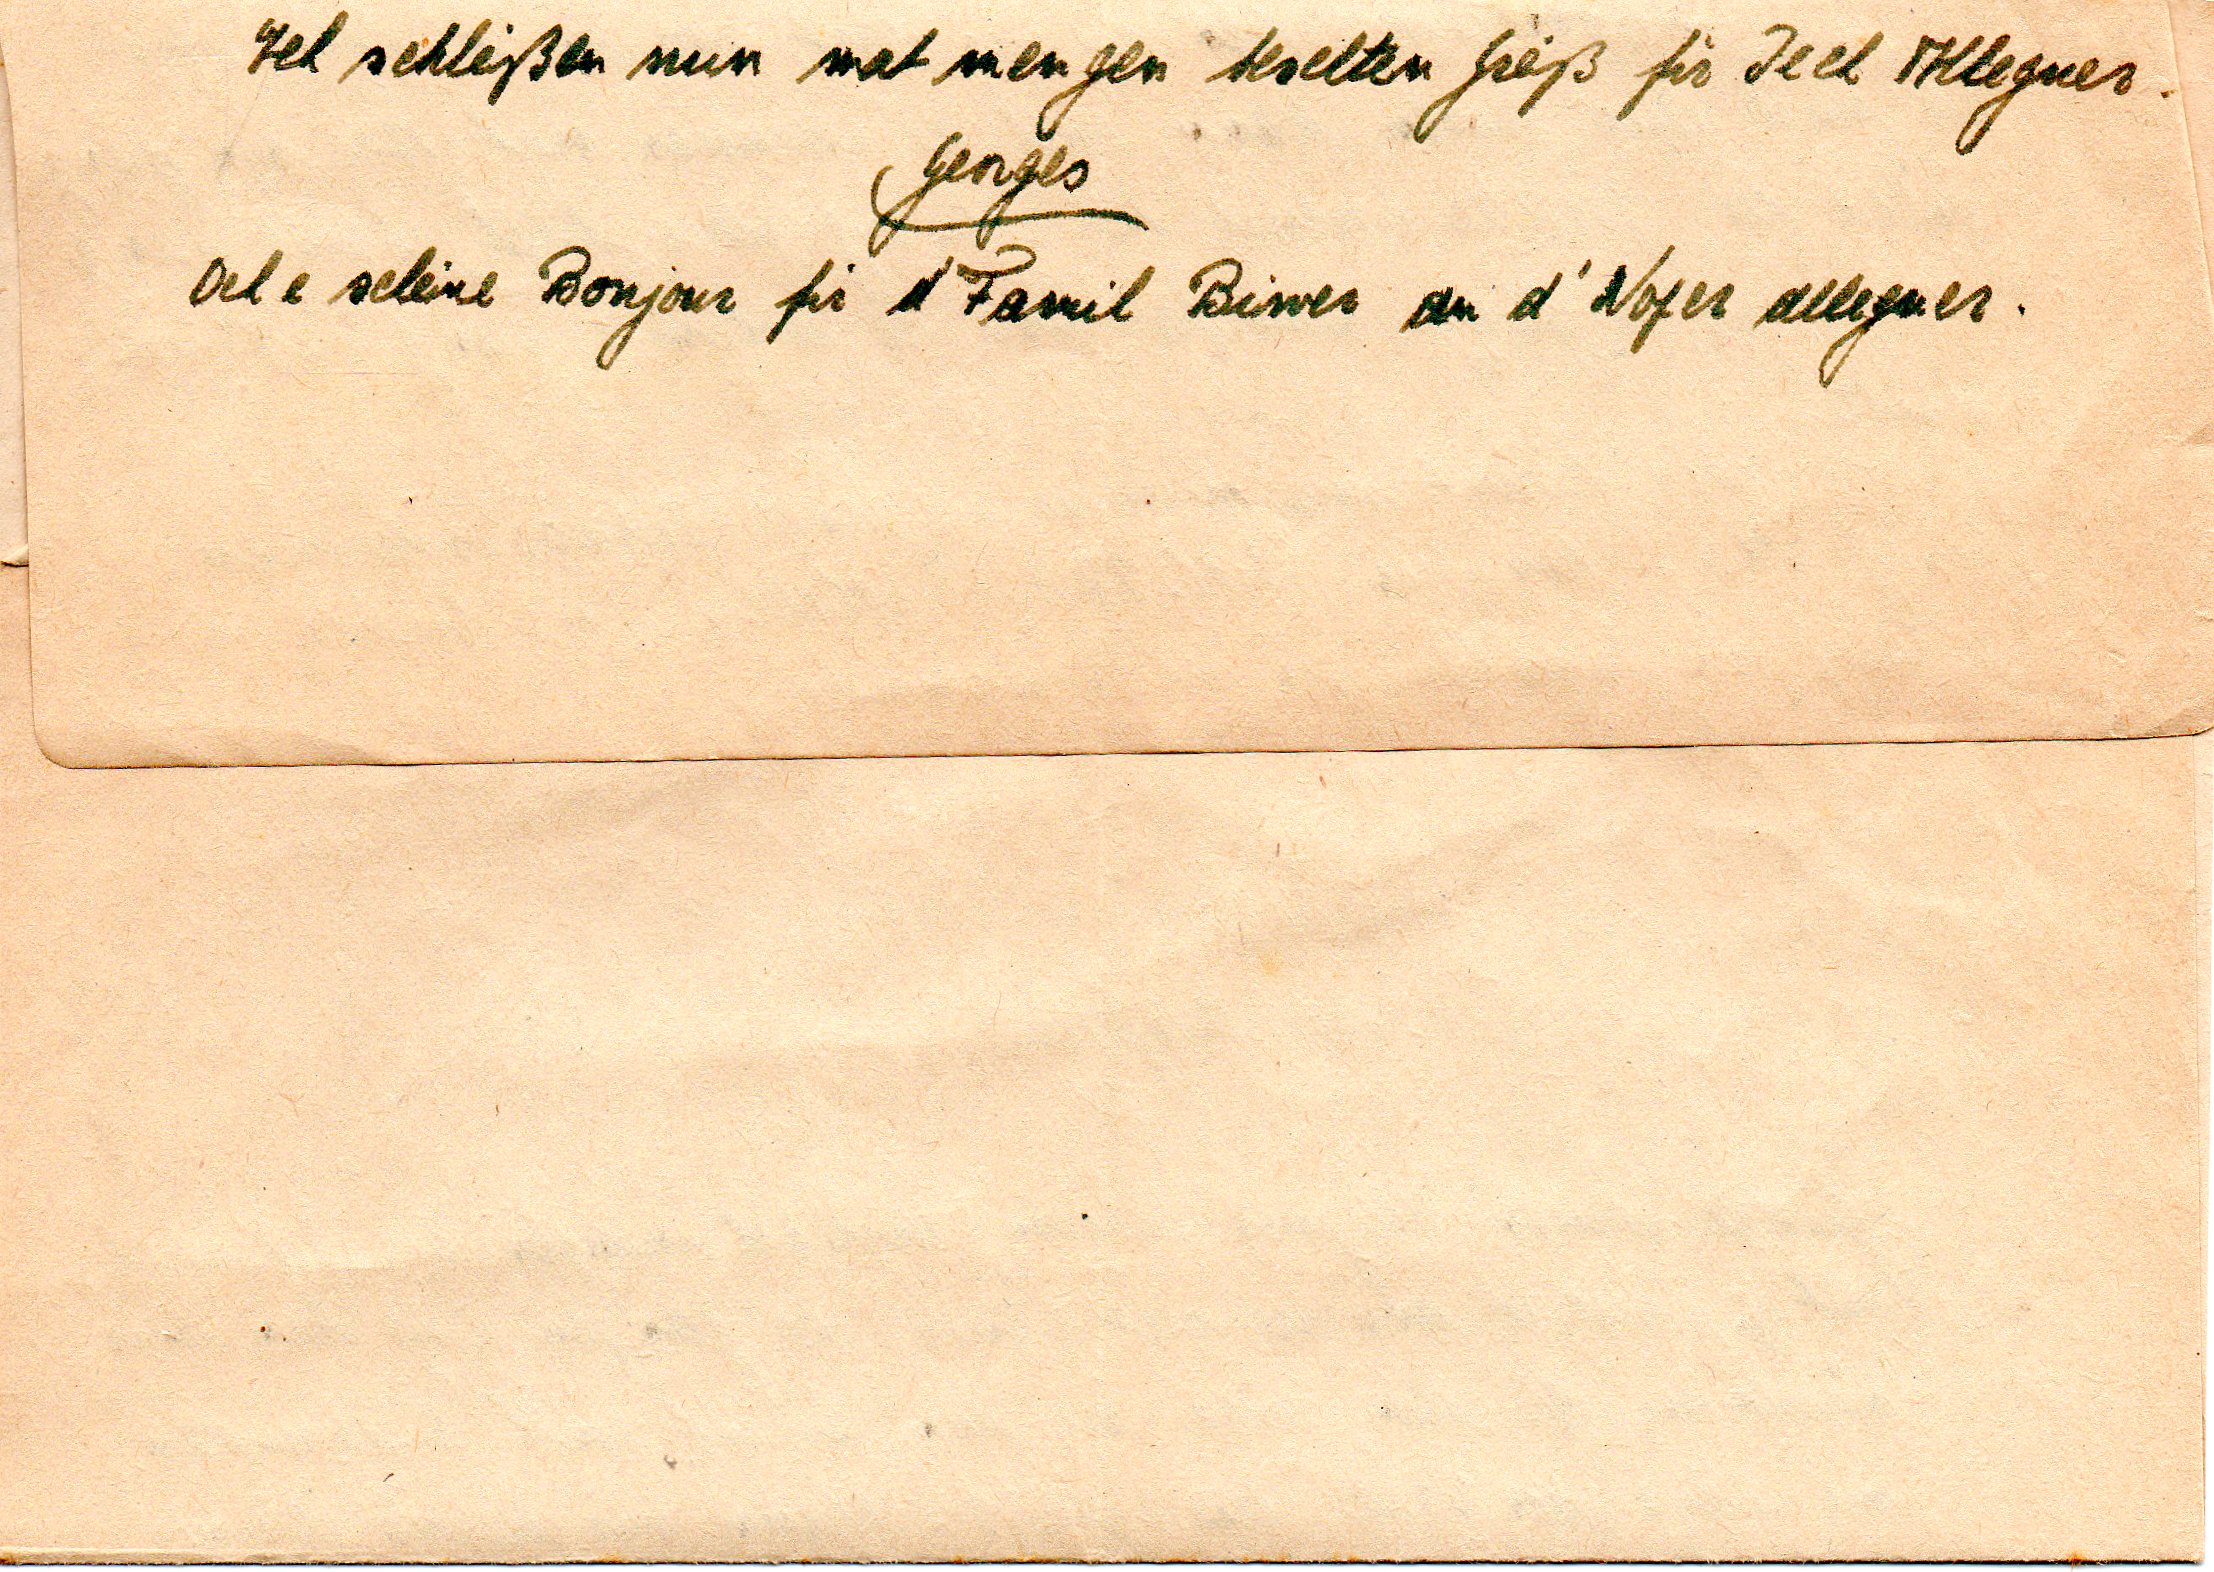 Ech schléißen nun mat mengen beschten Gréiß fir Iech Alleguer.
Georges
Och e schéine Bonjour fir d'Famil Biwer an d'Noper alleguer.